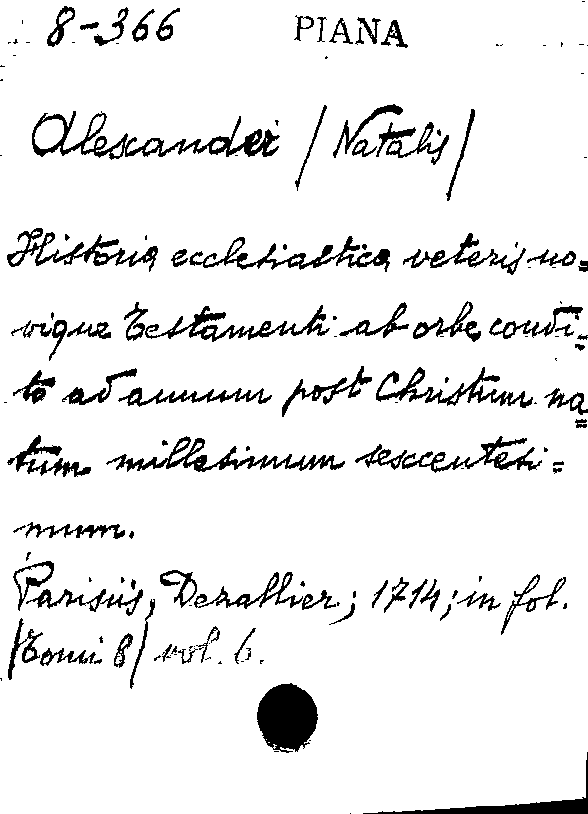 8-366 PIANA
Alexander /Natalis/
Historia ecclesiastica veteris no=
vique Testamenti ab orbe condi=
to ad annum post Christum na=
tum millesimum sexcentesi=
mum.
Parisiis, Dezallier; 1714; in fol.
/Tomi 8/ vol. 6.